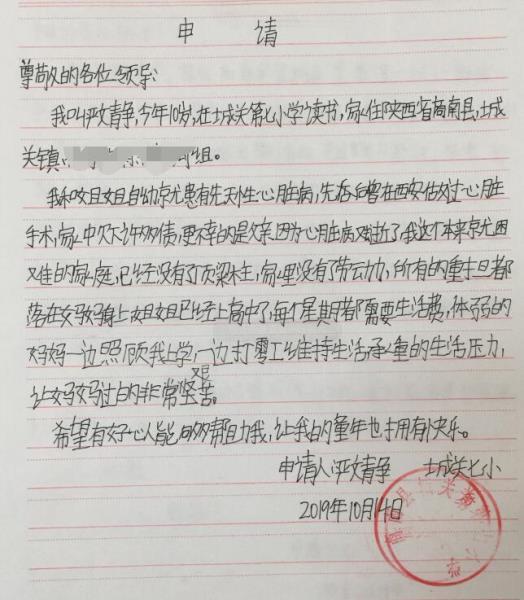 申 请
尊敬的各位领导:
我叫严文静,今年10岁,在城关第七小学读书,家住陕西省商南县,城
关镇 组。
我和姐姐自幼就患有先天性心脏病,先后曾在西安做过心脏
手术,家中欠下许多债,更不幸的是父亲因为心脏病 了,我这个本来就困
难的家庭,已经没有了顶梁柱,家里没有了劳动力,所有的重担都
落在妈妈身上姐姐已经上高中了,每个星期都需要生活费,体弱的
妈妈一边照顾我上学,一边打零工维持生活承重的生活压力,
让妈妈过的非常艰苦。
希望有好心人能够帮助我,让我的童年也拥有快乐。
申请人:严文静 城关七小
2019年10月14日